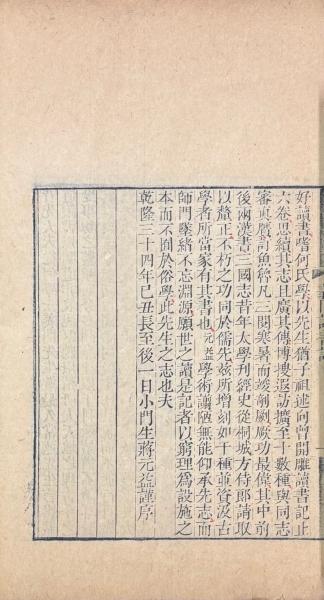 好讀書嗜何氏學以先生猶子祖述向曾開雕讀書記止
六卷思續其志且廣其傳博搜遐訪擴至十數種與同志
審真贋訂魚魯凡三閱寒暑而竣剞劂厥功最偉其中前
後兩漢書三國志昔年太學刊經史從桐城方侍郎請取
以釐正不朽之功同於儒先兹所增刻如干種並資汲古
學者所當家有其書也元益學術譾陋無能仰承先志而
師門墜緒不忘淵源願世之讀是記者以窮理為設施之
本而不囿於俗學此先生之志也夫
乾隆三十四年己丑長至後一日小門生蔣元益謹序